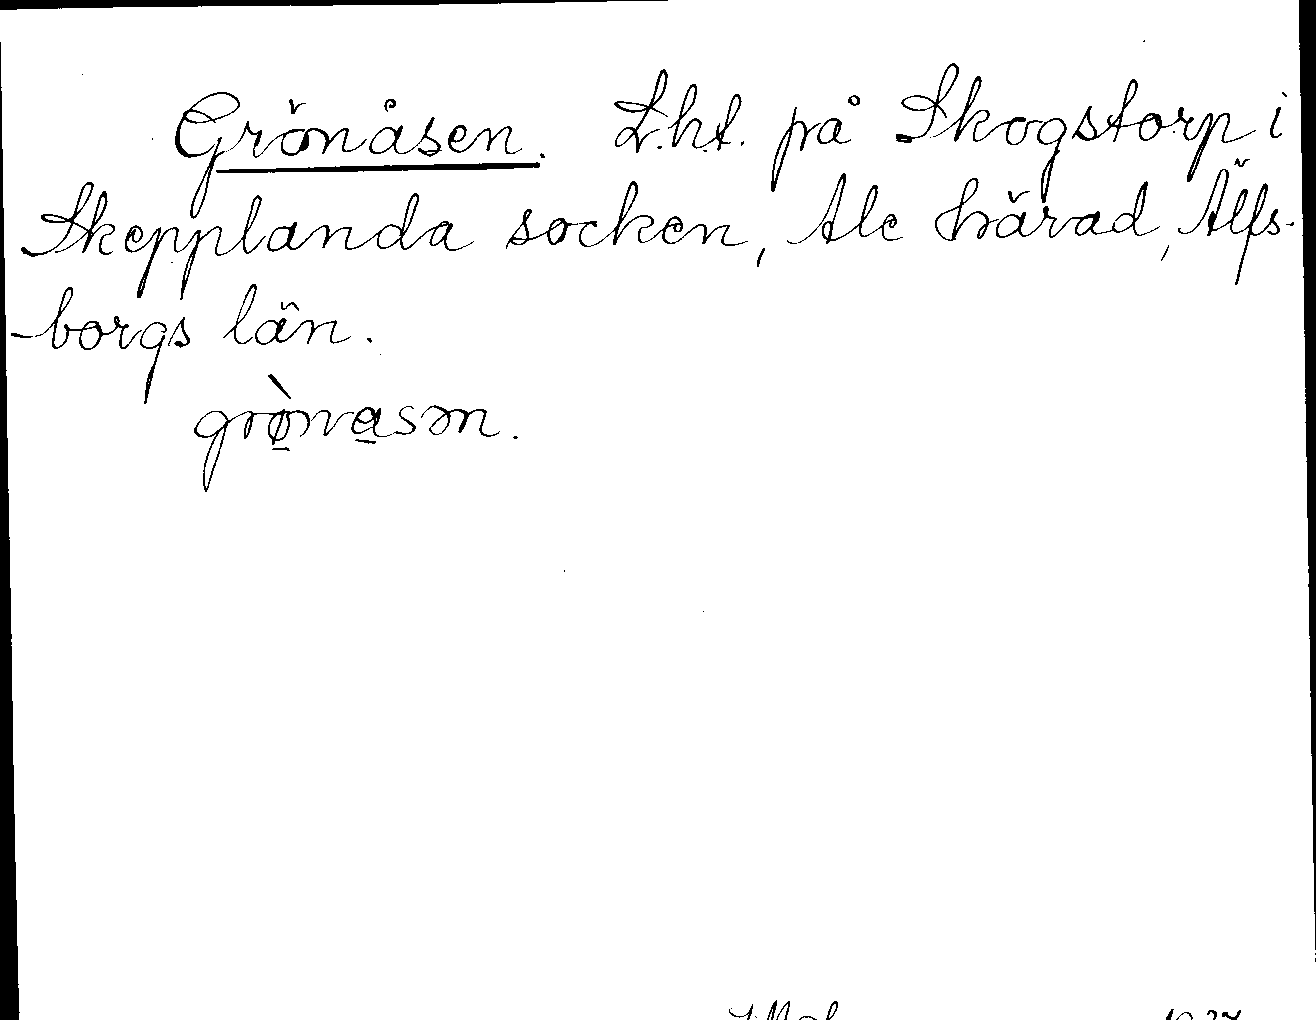 Grönåsen. L.ht. på Skogstorp i
Skepplanda socken, Ale härad, Älfs-
-borgs län.
grø̠̀nɑ̠sən.